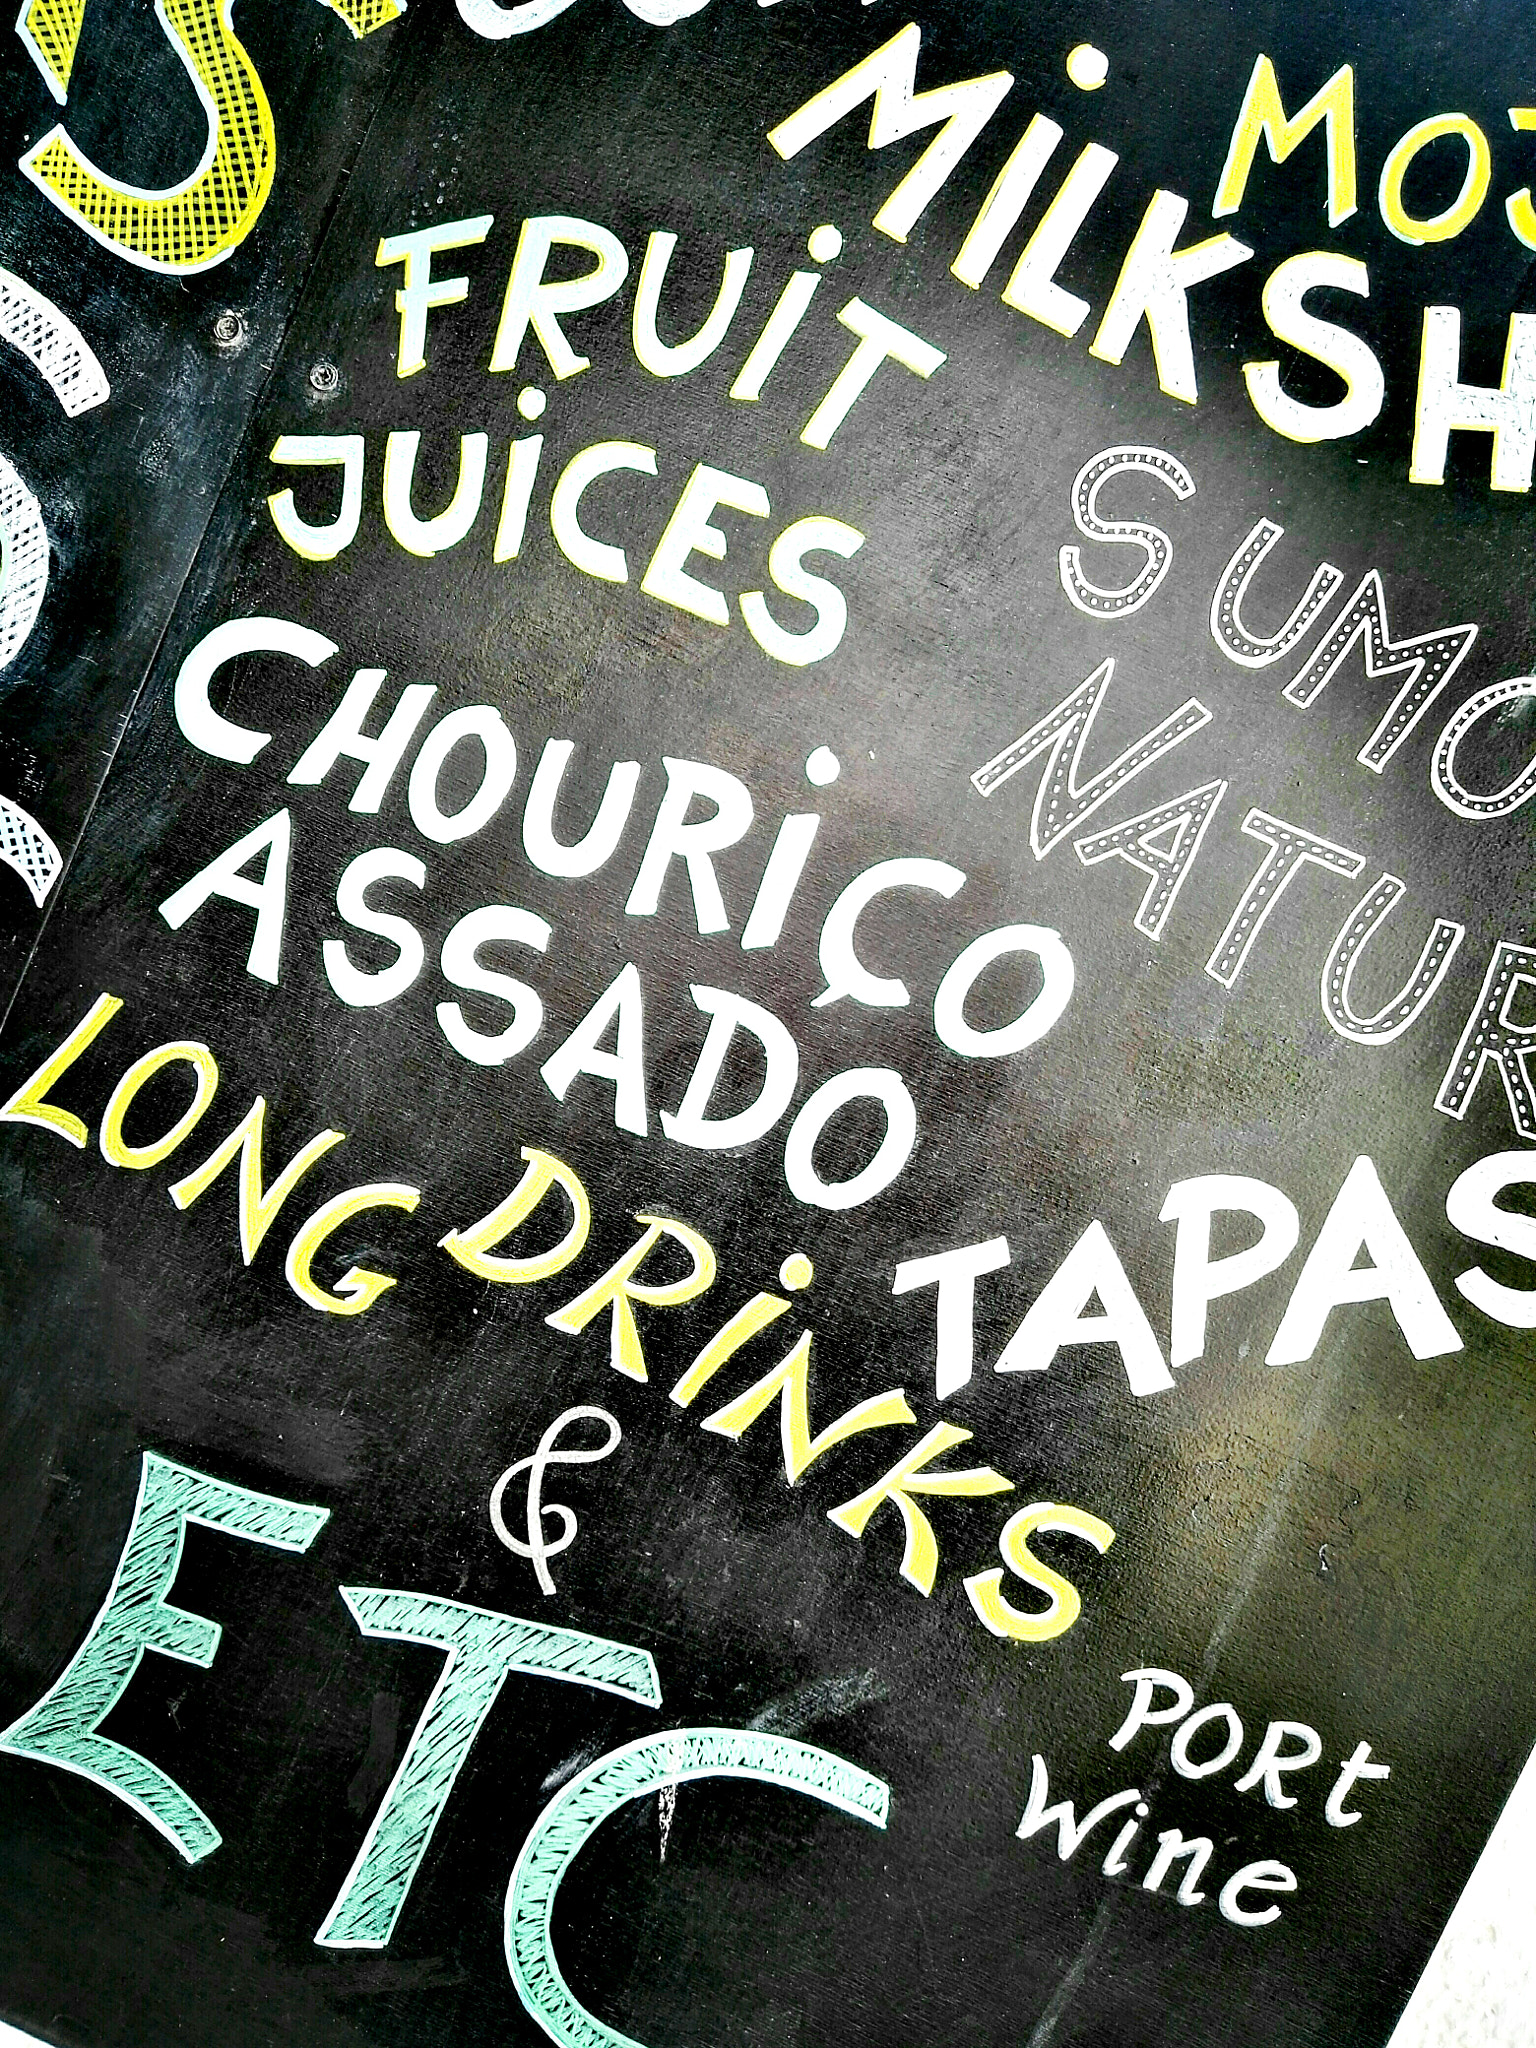 MOJ
MiLKSH
FRUiT
JUiCES
SUMO
NATUR
CHOURiÇO
ASSADO
TAPAS
LONG DRiNKS
&
ETC
PORt
Wine